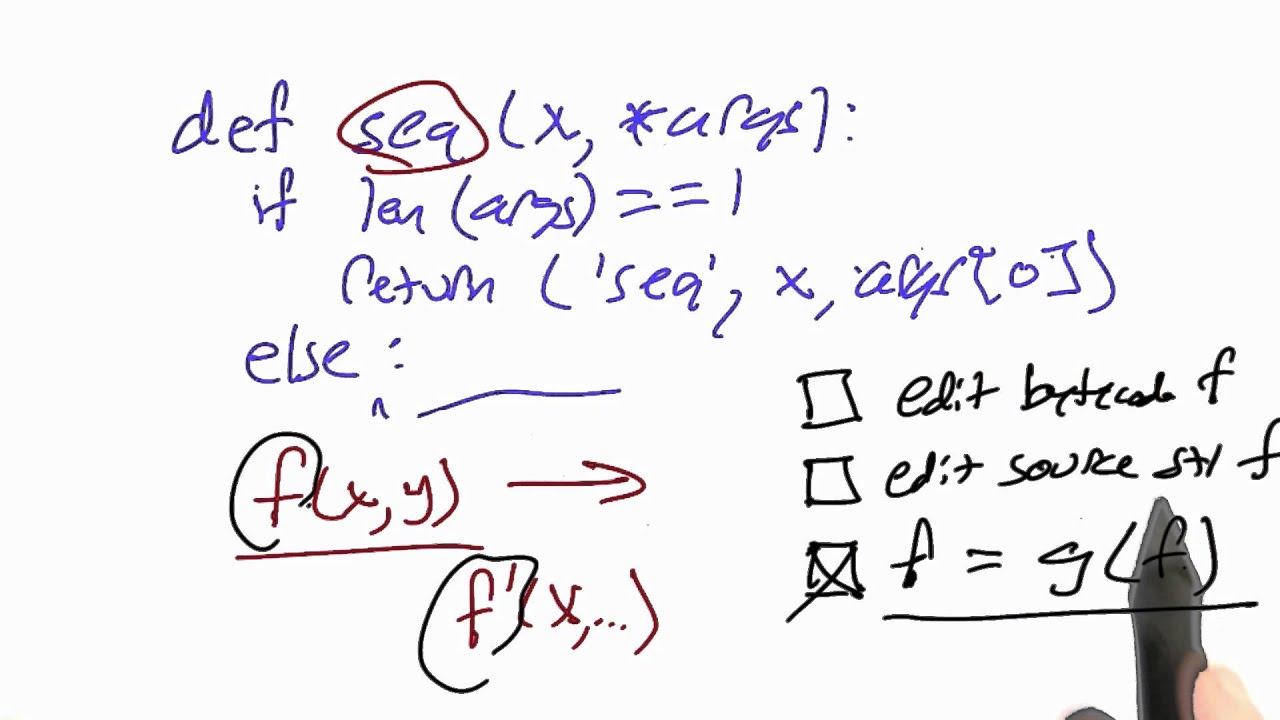 def seq (x, *args):
if len(args) == 1
return ('seq', x, args[0])
else :
f(x, y) →
f'(x, ...)
edit bytecode f
edit source str f
f = g(f)